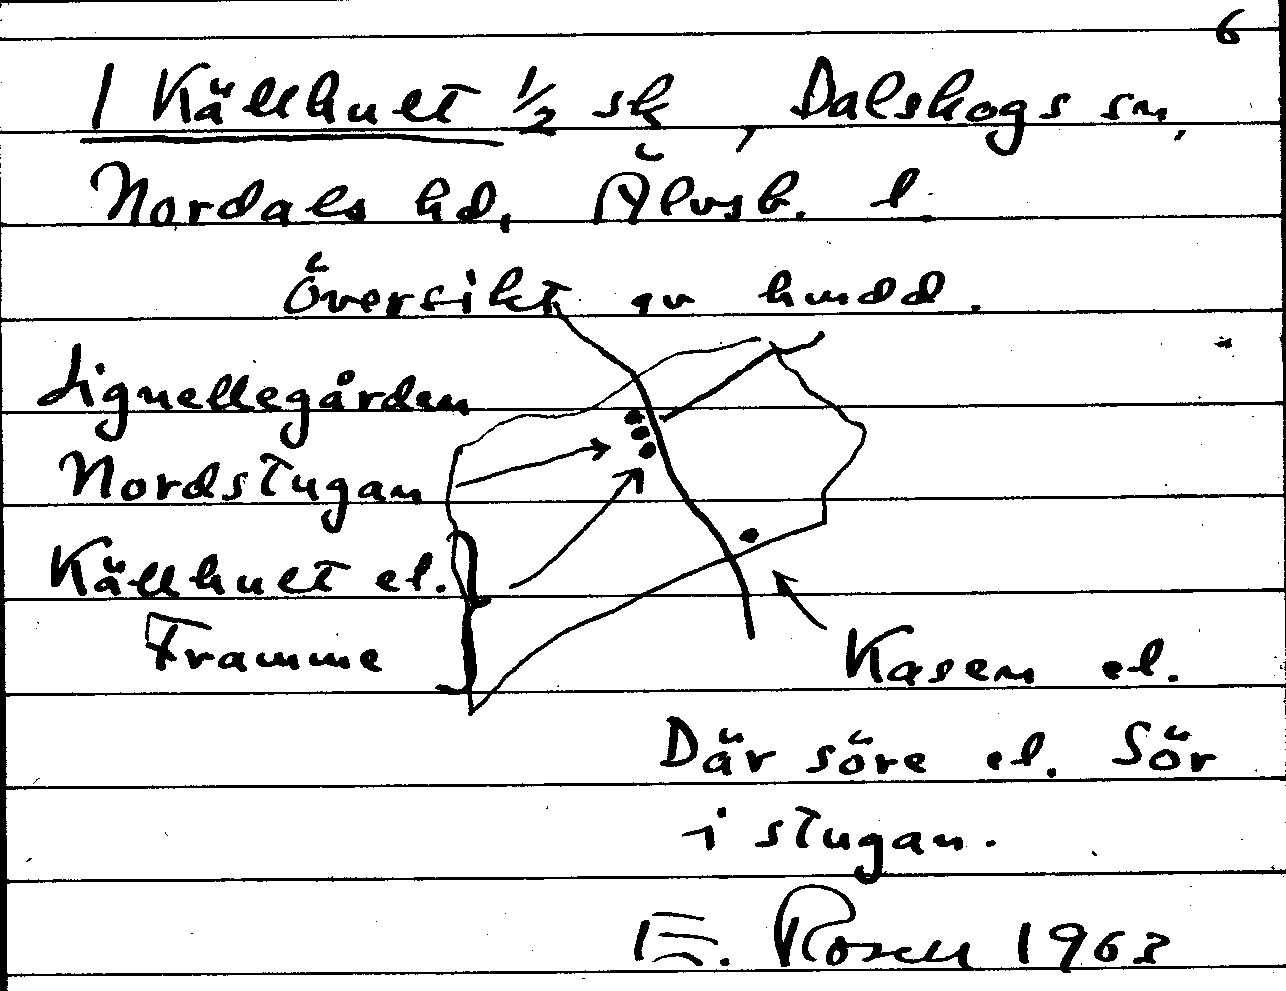 6
1 Källhult 1/2 sk, Dalskogs sn,
Nordals hd, Älvsb. l.
Översikt av hmdd.
Lignellegården
Nordstugan
Källhult el.
Framme
Kasen el.
Där söre el. Sör
i stugan.
E. Rosell 1963